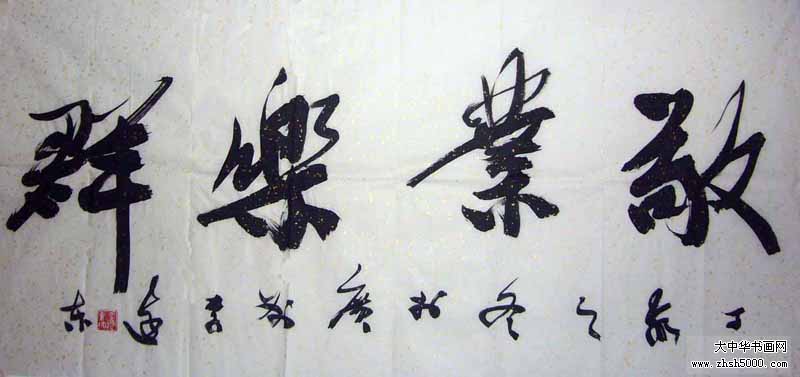 敬業樂群
丁亥之冬於廣
东
大中华书画网
www.zhsh5000.com